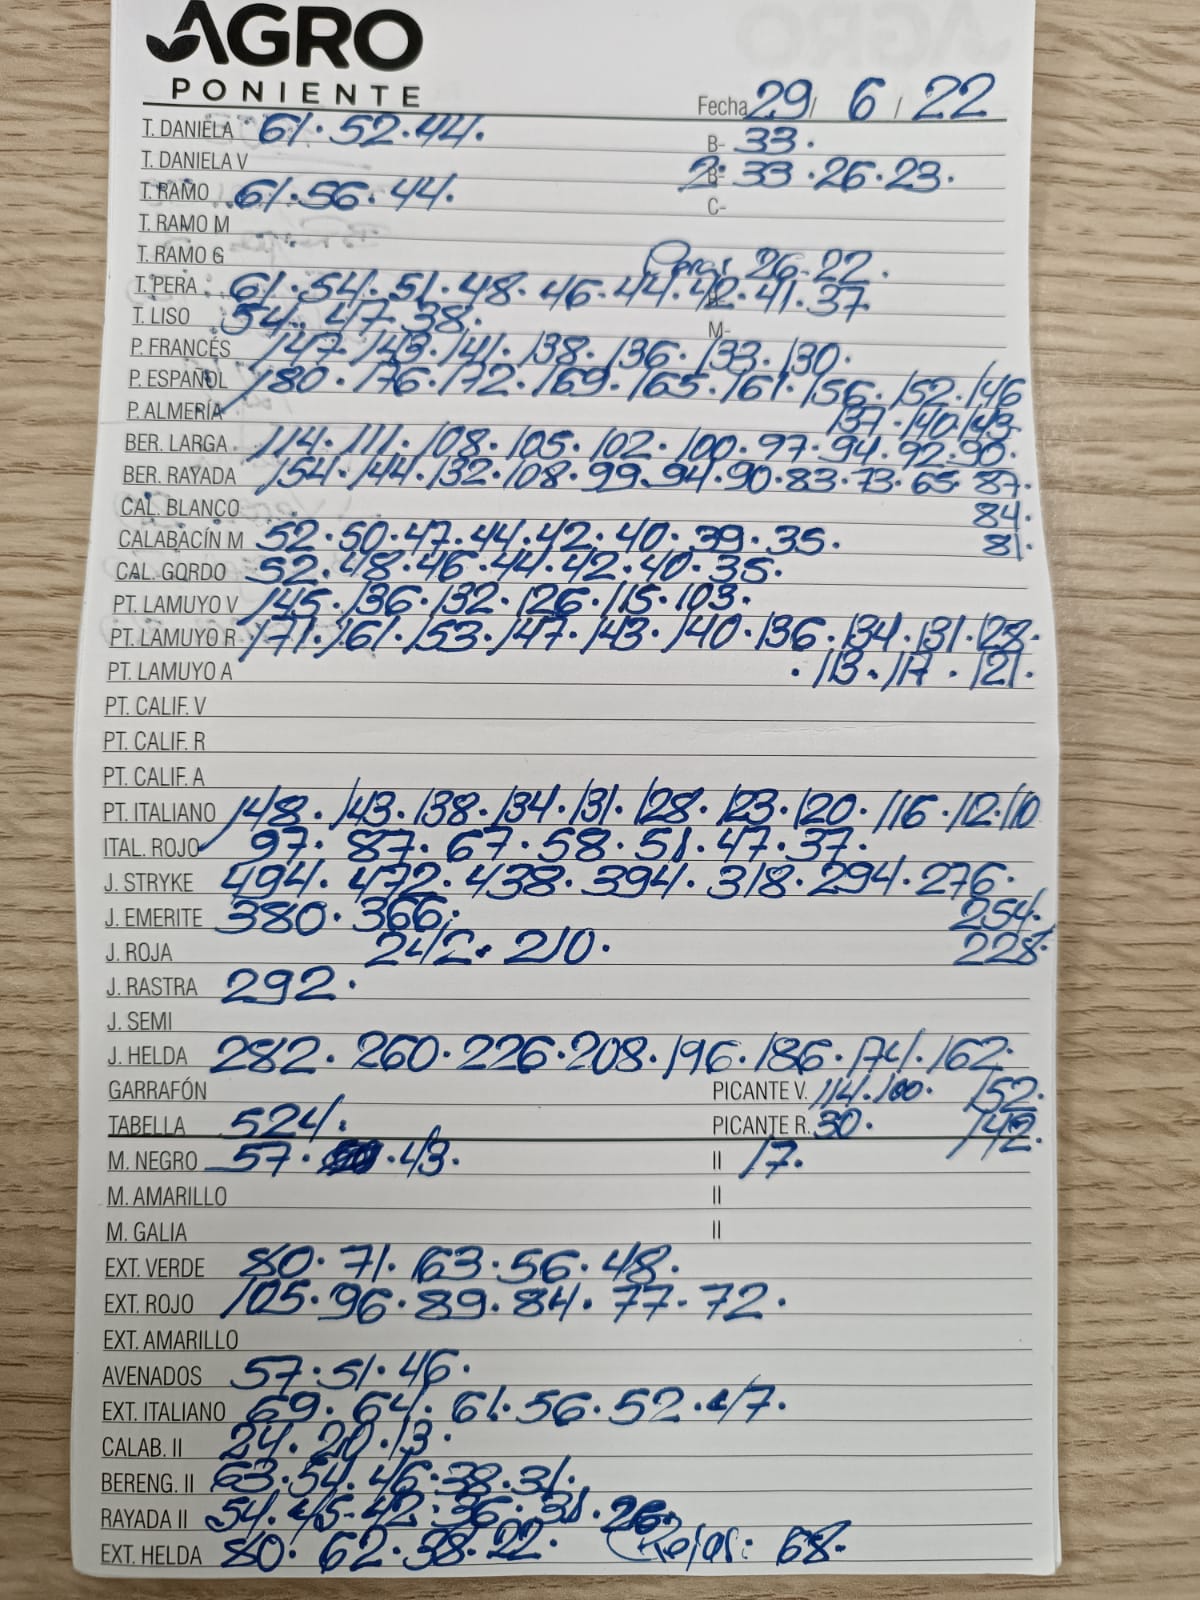 AGRO
PONIENTE
Fecha 29/ 6 / 22
T. DANIELA 61. 52. 44. B- 33.
T. DANIELA V 2: B- 33 . 26. 23.
T. RAMO 61. 56. 44. C-
T. RAMO M
T. RAMO G Pera: 26. 22.
T. PERA 61. 54. 51. 48. 46. 44. 42. 41. 37.
T. LISO 54. 47. 38. M-
P. FRANCÉS 147. 143. 141. 138. 136. 133. 130.
P. ESPAÑOL 180. 176. 172. 169. 165. 161. 156. 152. 146
P. ALMERÍA 137. 140. 143.
BER. LARGA 114. 111. 108. 105. 102. 100. 97. 94. 92. 90.
BER. RAYADA 154. 144. 132. 108. 99. 94. 90. 83. 73. 65. 87.
CAL. BLANCO 84.
CALABACÍN M 52. 50. 47. 44. 42. 40. 39. 35. 81.
CAL. GORDO 52. 48. 46. 44. 42. 40. 35.
PT. LAMUYO V 145. 136. 132. 126. 115. 103.
PT. LAMUYO R 171. 161. 153. 147. 143. 140. 136. 134. 131. 128.
PT. LAMUYO A . 113. 117 . 121.
PT. CALIF. V
PT. CALIF. R
PT. CALIF. A
PT. ITALIANO 148. 143. 138. 134. 131. 128. 123. 120. 116. 112. 110
ITAL. ROJO 97. 87. 67. 58. 51. 47. 37.
J. STRYKE 494. 472. 438. 394. 318. 294. 276.
J. EMERITE 380. 366. 254.
J. ROJA 242. 210. 228.
J. RASTRA 292.
J. SEMI
J. HELDA 282. 260. 226. 208. 196. 186. 174. 162.
GARRAFÓN PICANTE V. 114. 100. 152.
TABELLA 524. PICANTE R. 30. 142.
M. NEGRO 57. 43. II 17.
M. AMARILLO II
M. GALIA II
EXT. VERDE 80. 71. 63. 56. 48.
EXT. ROJO 105. 96. 89. 84. 77. 72.
EXT. AMARILLO
AVENADOS 57. 51. 46.
EXT. ITALIANO 69. 64. 61. 56. 52. 47.
CALAB. II 24. 20. 13.
BERENG. II 63. 54. 46. 38. 31.
RAYADA II 54. 45. 42. 36. 31. 26.
EXT. HELDA 80. 62. 38. 22. Rojas: 68.